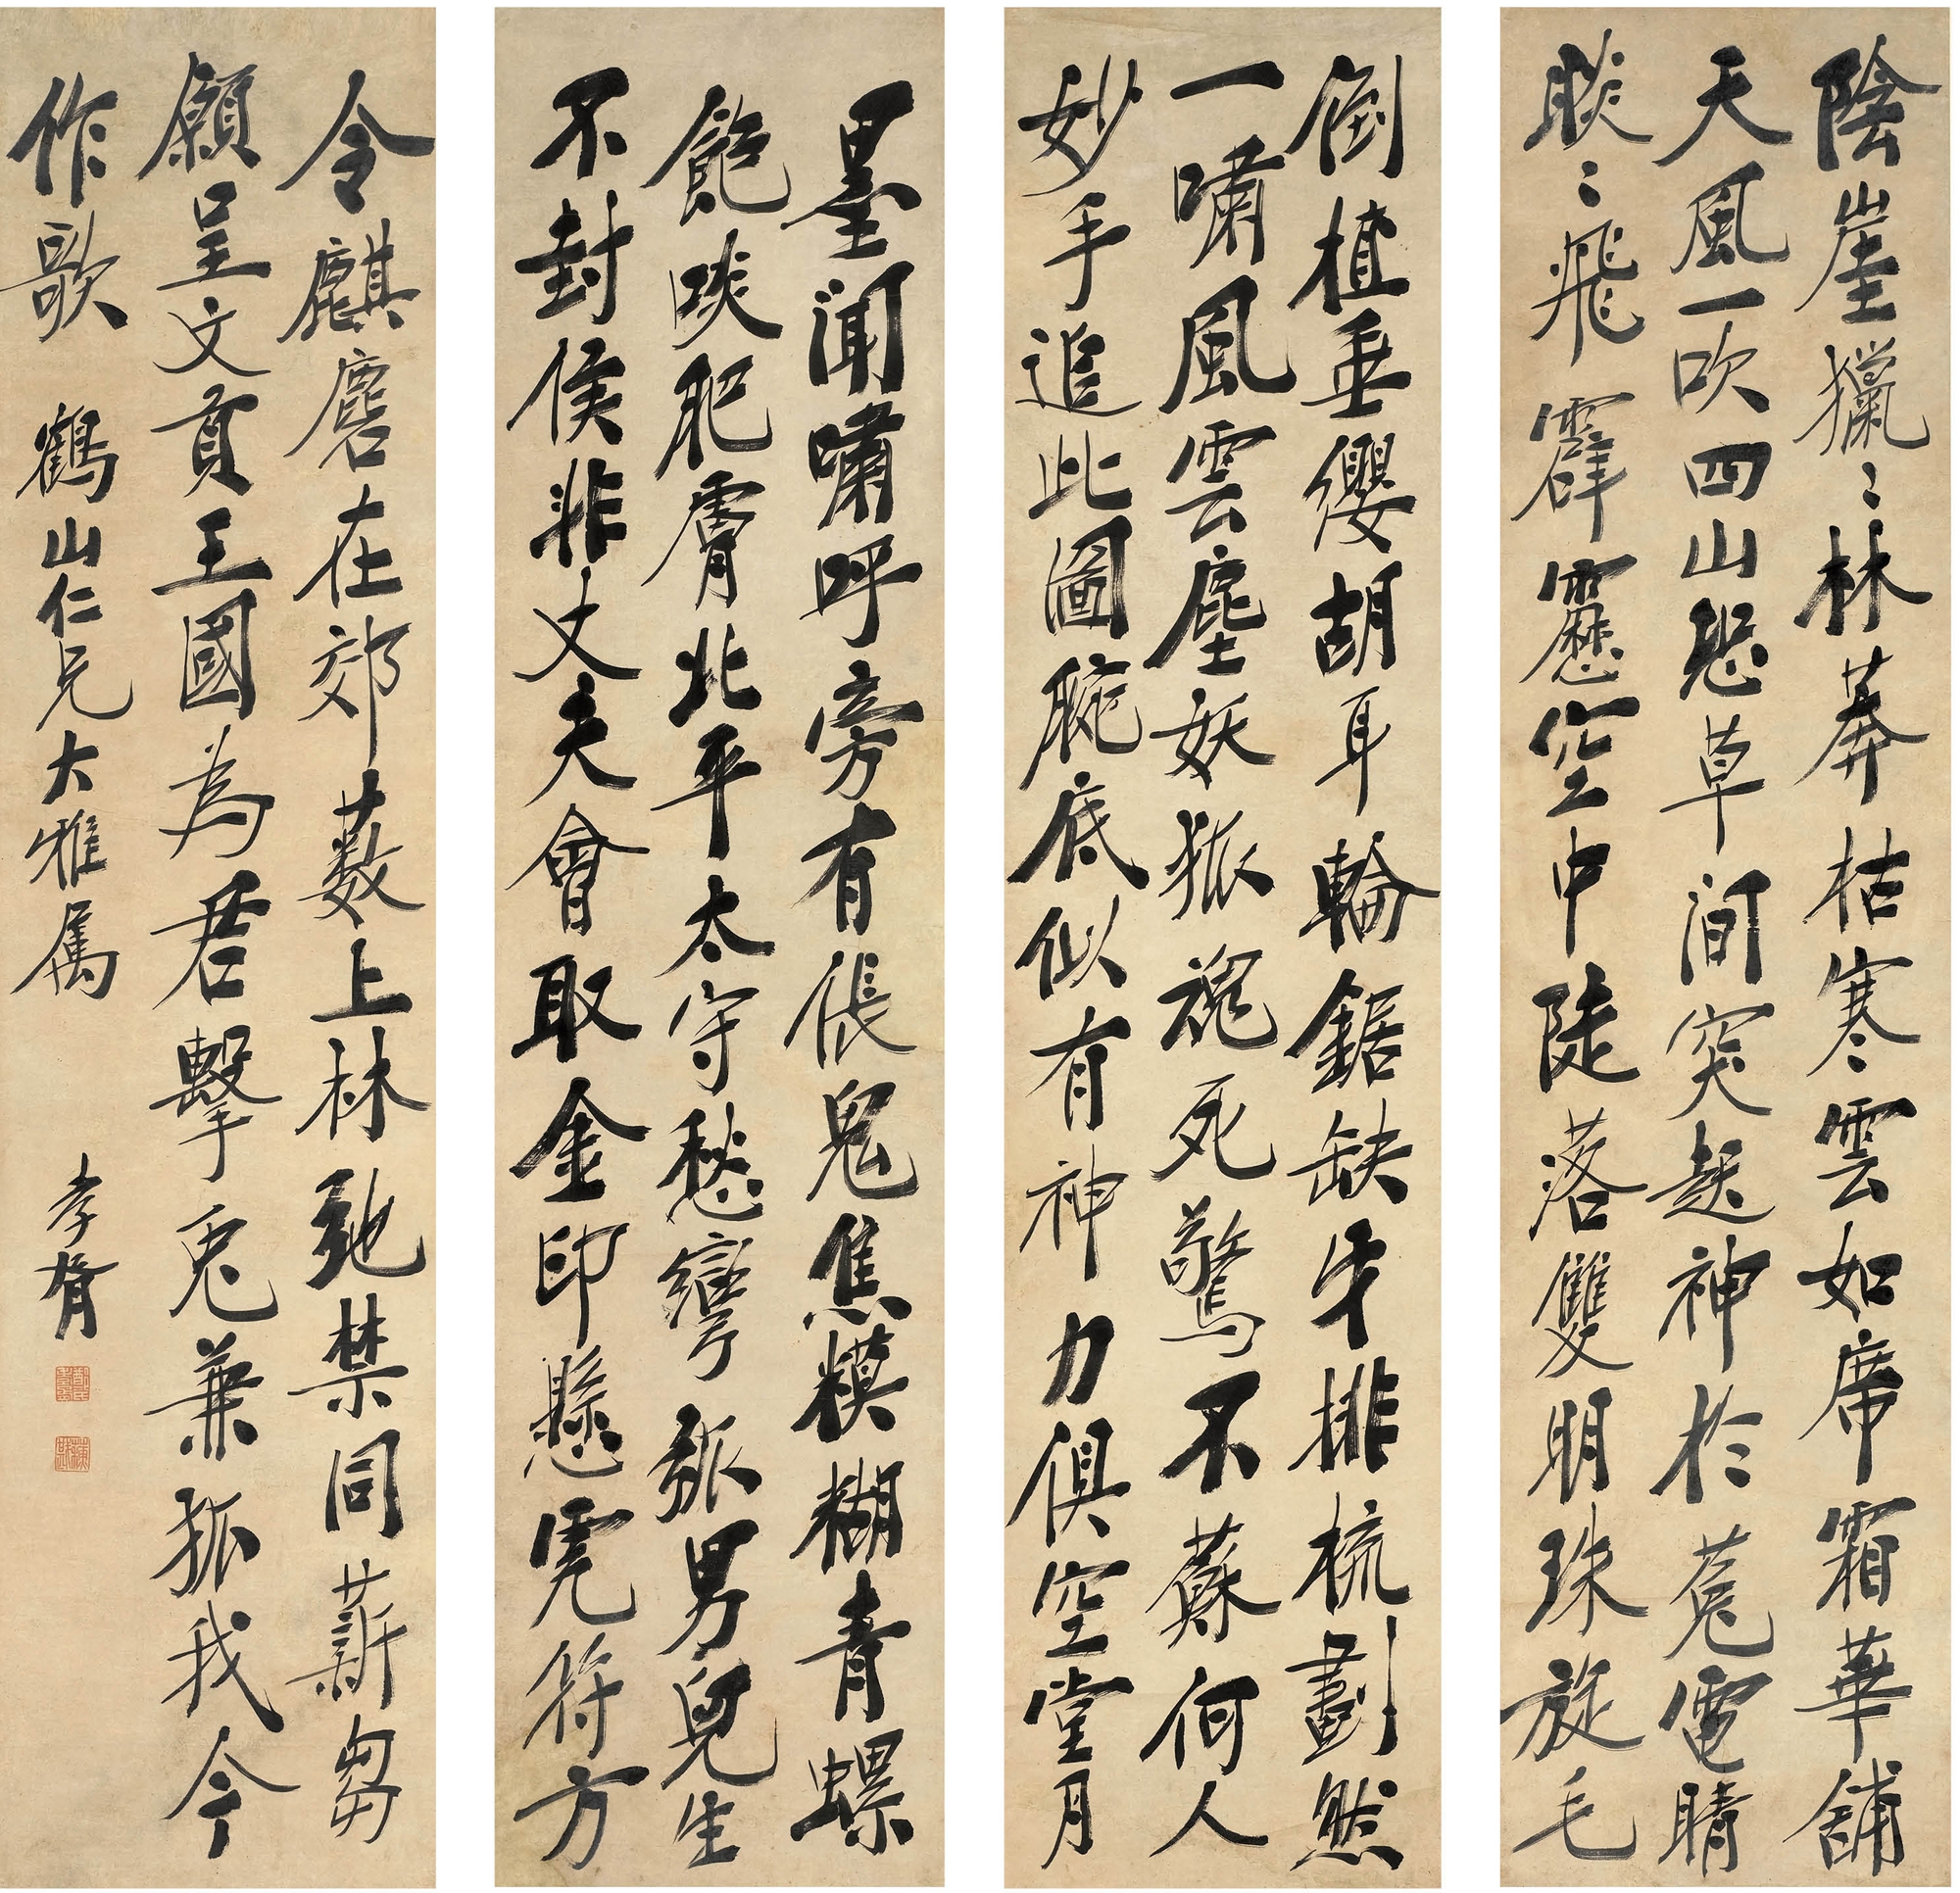 陰崖獵〻林莽枯寒雲如席霜華舖
天風一吹四山恐草間突起神於菟電睛
睒〻飛霹靂空中陡落雙明珠旋毛
倒植垂纓胡耳輪鋸缺牙排梳劃然
一嘯風雲塵妖狐魂死驚不蘇何人
妙手追此圖腕底似有神力俱空堂月
墨聞嘯呼旁有倀鬼焦糢糊青螺
飽啖肥膚北平太守愁彎弧男兒生
不封侯非丈夫會取金印懸虎符方
令麒麐在郊薮上林弛禁同薪芻
願呈文貢王國為君擊兎兼狐我今
作歌
鶴山仁兄大雅属
孝胥